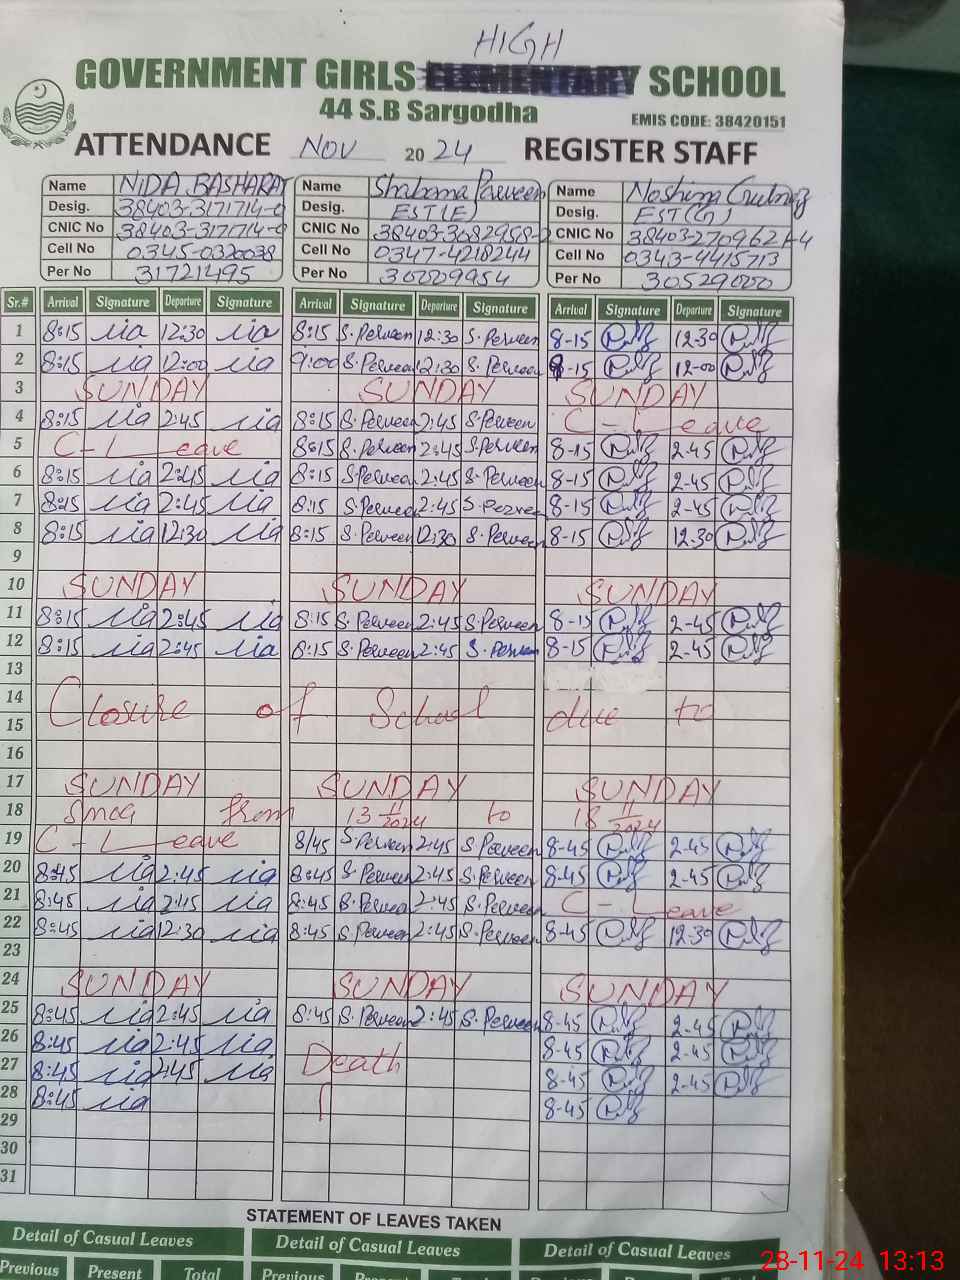 HIGH
GOVERNMENT GIRLS ELEMENTARY SCHOOL
44 S.B Sargodha
EMIS CODE: 38420151
ATTENDANCE Nov 2024 REGISTER STAFF
Name NIDA BASHARAT Name Shabana Parveen Name Noshina
Desig. 38403-3171714-0 Desig. EST(E) Desig. EST(G)
CNIC No 38403-3171714-0 CNIC No 38403-3082958- CNIC No 38403-2709621-4
Cell No 0345-0320038 Cell No 0347-4218244 Cell No 0343-4415713
Per No 31721495 Per No 30009954 Per No 30529000
Sr.# Arrival Signature Departure Signature Arrival Signature Departure Signature Arrival Signature Departure Signature
1 8:15 12:30 8:15 S. Perveen 12:30 S. Perveen 8-15 12-30
2 8:15 12:00 9:00 S. Perveen 12:30 S. Perveen 8-15 12-00
3 SUNDAY SUNDAY SUNDAY
4 8:15 2:45 8:15 S. Perveen 2:45 S. Perveen C-Leave
5 C-Leave 8:15 S. Perveen 2:45 S. Perveen 8-15 2-45
6 8:15 2:45 8:15 S. Perveen 2:45 S. Perveen 8-15 2-45
7 8:15 2:45 8:15 S. Perveen 2:45 S. Perveen 8-15 2-45
8 8:15 12:30 8:15 S. Perveen 12:30 S. Perveen 8-15 12-30
9
10 SUNDAY SUNDAY SUNDAY
11 8:15 2:45 8:15 S. Perveen 2:45 S. Perveen 8-15 2-45
12 8:15 2:45 8:15 S. Perveen 2:45 S. Perveen 8-15 2-45
13
14 Closure of School due to
15
16
17 SUNDAY SUNDAY SUNDAY
18 Smog from 13 11/2024 to 18 11/2024
19 C-Leave 8/45 S. Perveen 2:45 S. Perveen 8-45 2-45
20 8:45 2:45 8:45 S. Perveen 2:45 S. Perveen 8-45 2-45
21 8:45 2:45 8:45 S. Perveen 2:45 S. Perveen C-Leave
22 8:45 12:30 8:45 S. Perveen 2:45 S. Perveen 8-45 12-30
23
24 SUNDAY SUNDAY SUNDAY
25 8:45 2:45 8:45 S. Perveen 2:45 S. Perveen 8-45 2-45
26 8:45 2:45 8-45 2-45
27 8:45 2:45 Death 8-45 2-45
28 8:45 8-45
29
30
31
STATEMENT OF LEAVES TAKEN
Detail of Casual Leaves Detail of Casual Leaves Detail of Casual Leaves
Previous Present Total Previous
28-11-24 13:13